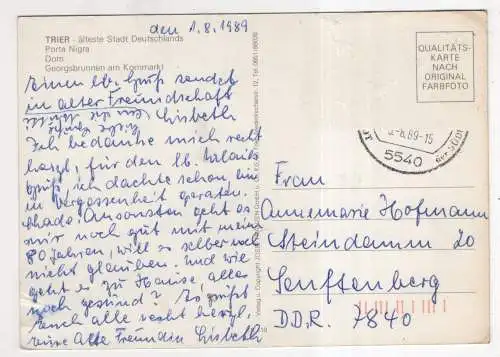 den 1.8.1989
TRIER - älteste Stadt Deutschlands
Porta Nigra
Dom
Georgsbrunnen am Kornmarkt
Einen lb. Gruß sendet
in alter Freundschaft
Lisbeth
Ich bedanke mich recht
herzl. für den lb. Urlaubs
gruß, ich dachte schon bin
in Vergessenheit geraten.
schade. Ansonsten geht es
mir noch gut mit mein
80 Jahren, will es selber noch
nicht glauben. Und wie
geht es zu Hause, alles
noch gesund? Es grüßt
Euch alle recht herzl.
Eure Alte Freundin Lisbeth
QUALITÄTS-
KARTE
NACH
ORIGINAL
FARBFOTO
8.89-15
5540
Frau
Annemarie Hofmann
Steindamm 20
Senftenberg
D.D.R. 7840